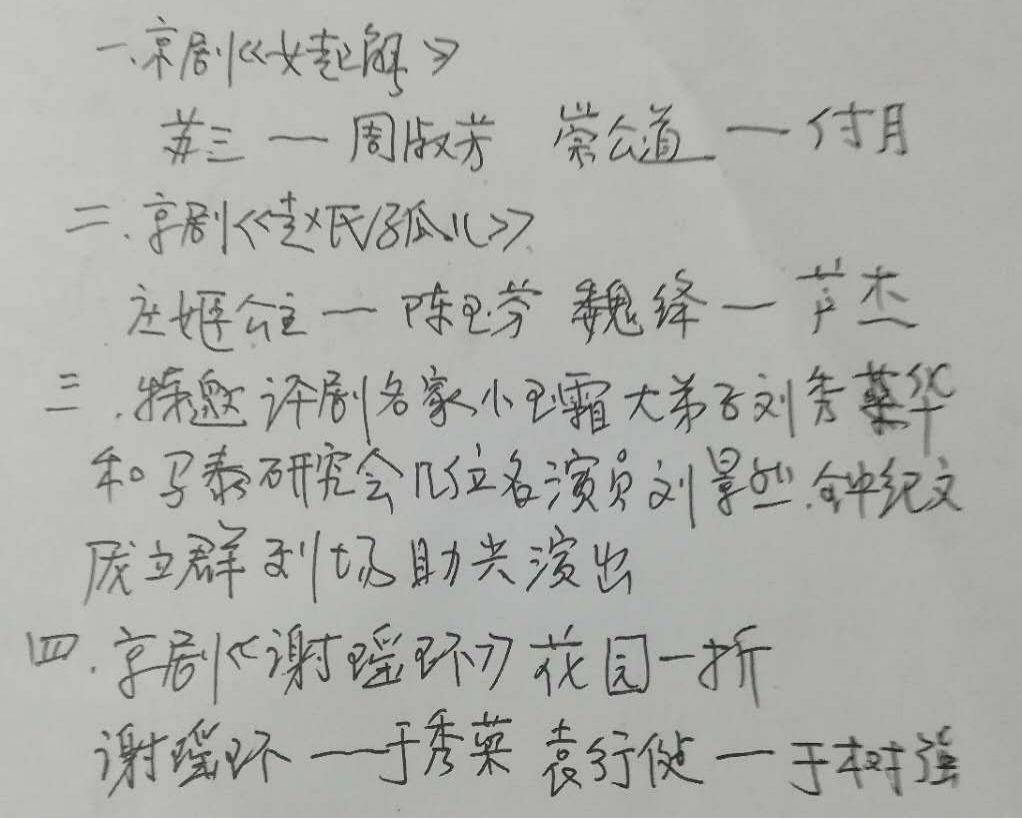 一.京剧《女起解》
苏三 — 周淑芳 崇公道 — 付月
二.京剧《赵氏孤儿》
庄姬公主 — 陈玉芬 魏绛 — 芦杰
三.特邀评剧名家小玉霜大弟子刘秀华
和马泰研究会几位名演员刘景然.钟纪文
庞立群到场助兴演出
四.京剧《谢瑶环》花园一折
谢瑶环 — 于秀菜 袁行健 — 于树强